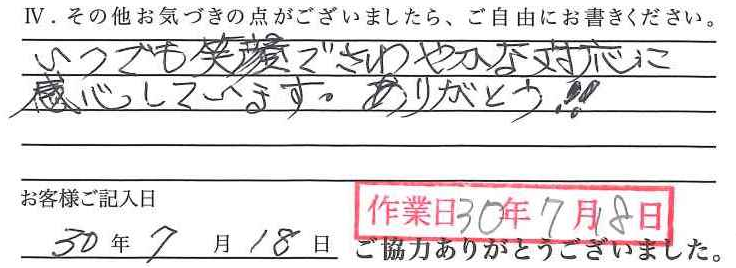 Ⅳ．その他お気づきの点がございましたら、ご自由にお書きください。
いつでも笑顔でさわやかな対応に
感心しています。ありがとう!!
お客様ご記入日
作業日30年7月18日
30年7月18日
ご協力ありがとうございました。